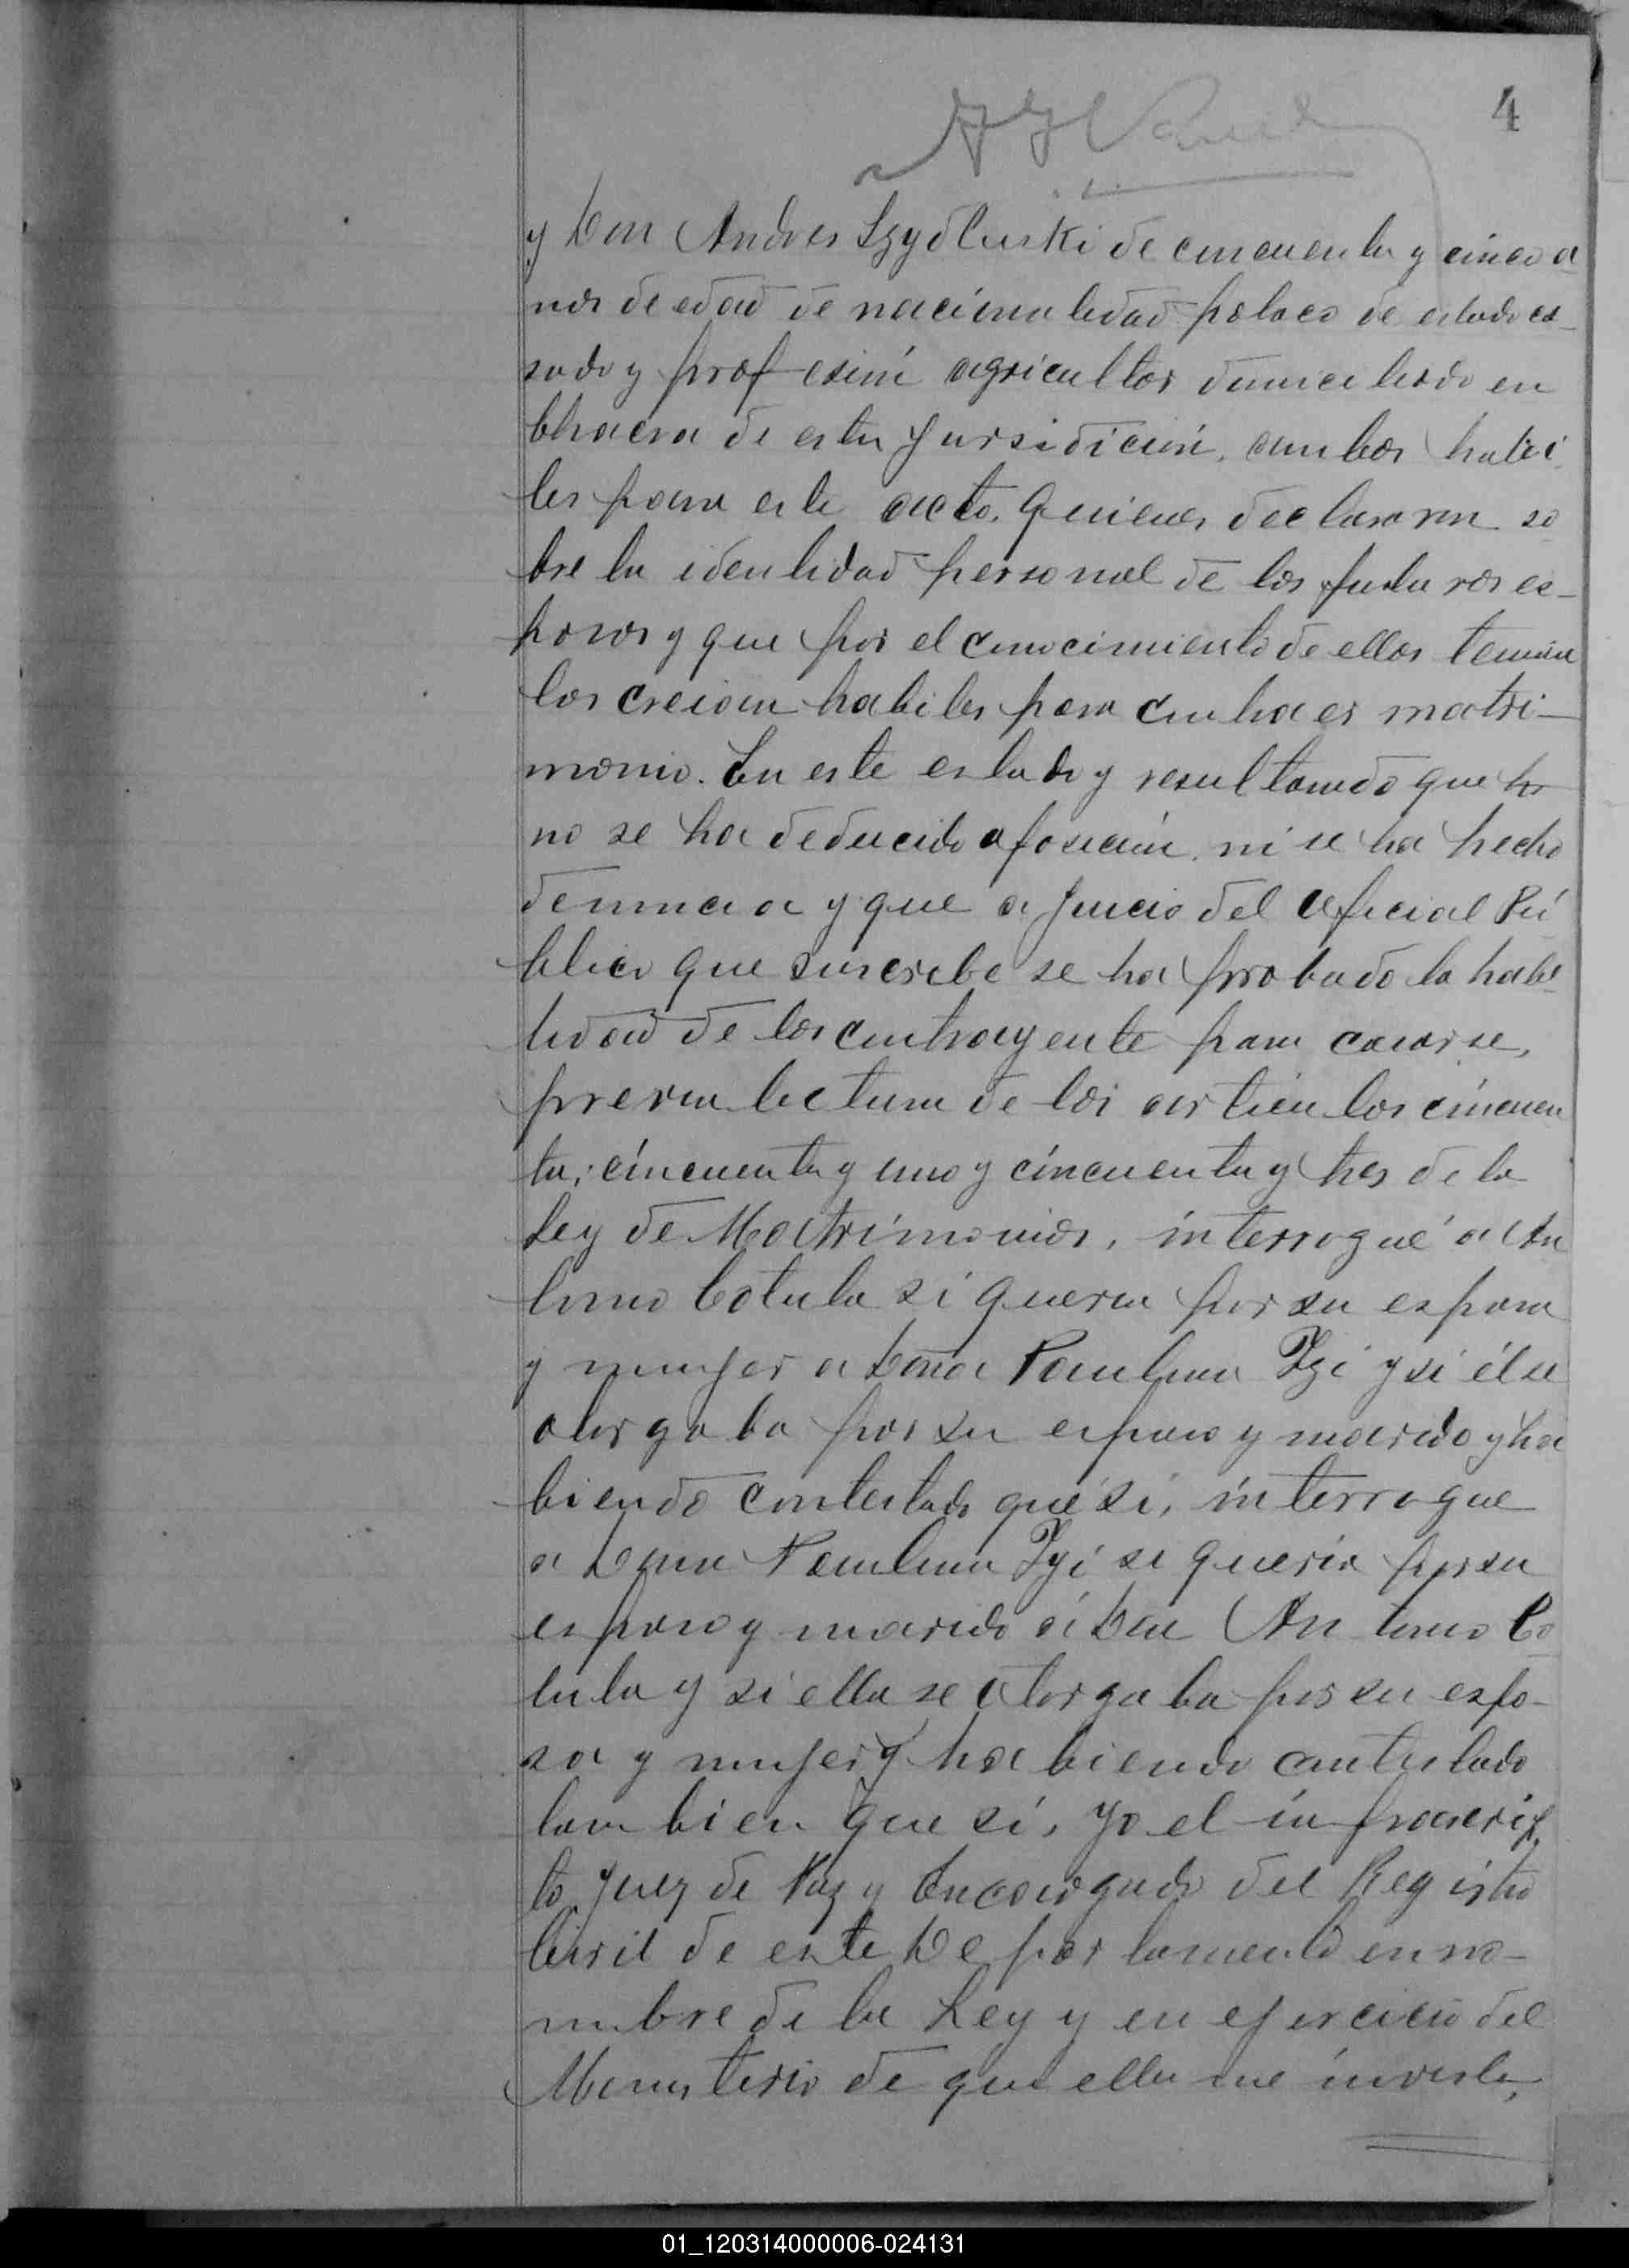 4
y Don Andres Szydluski de cincuenta y cinco a
ños de edad de nacionalidad polaca de estado ca-
sado y profesión agricultor domiciliado en
Chacra de esta Jursidición, ambos habi
les para este acto, quienes declararon so
bre la identidad personal de los futuros es-
posos y que por el conocimiento de ellos tenian
los creian habiles para contraer matri-
monio. En este estado y resultando que
no se ha deducido oposición ni se ha hecho
denuncia y que a juicio del Oficial Pú
blico que suscribe se ha probado la habi
lidad de los contrayente para casarse,
previa lectura de los articulos cincuen
ta, cincuenta y uno y cincuenta y tres de la
Ley de Matrimonios, interrogué a An
tonio Cotula si queria por su esposa
y mujer a Doña Paulina Zyi y si él se
otorgaba por su esposo y marido y ha
biendo contestado que si, interrogue
a Doña Paulina Zyi si queria por su
esposo y marido á Don Antonio Co
tula y si ella se otorgaba por su espo-
sa y mujer y habiendo contestado
tambien que si, yo el infrascrip
to Juez de Paz y Encargado del Registro
Civil de este Departamento en no-
mbre de la Ley y en ejercicio del
Menisterio de que ella me inviste,
01_120314000006-024131